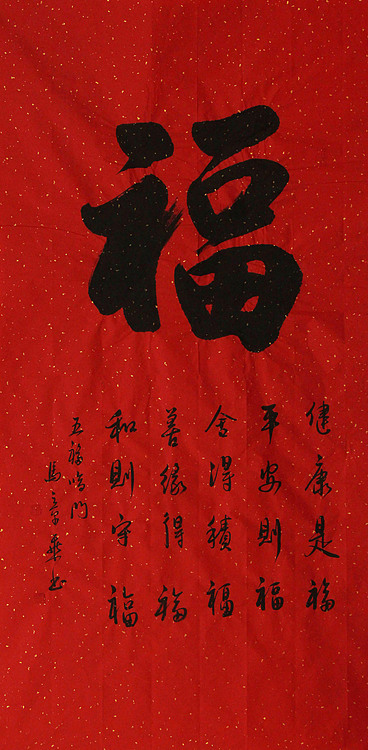 福
健康是福
平安則福
舍得積福
善緣得福
和則守福
五福临门
馬章乘书